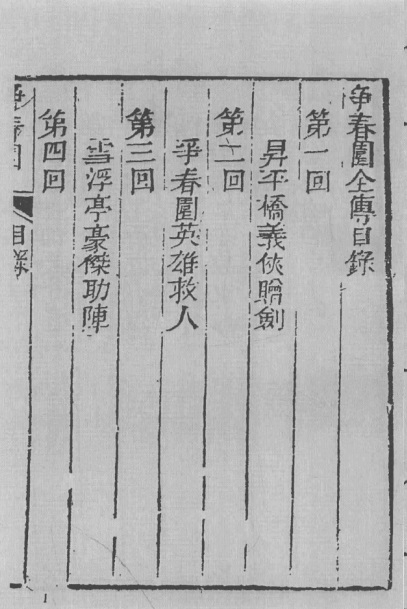 争春園全傳目錄
第一回
昇平橋義俠贈劍
第二回
爭春園英雄救人
第三回
雪浮亭豪傑助陣
第四回
目錄
1